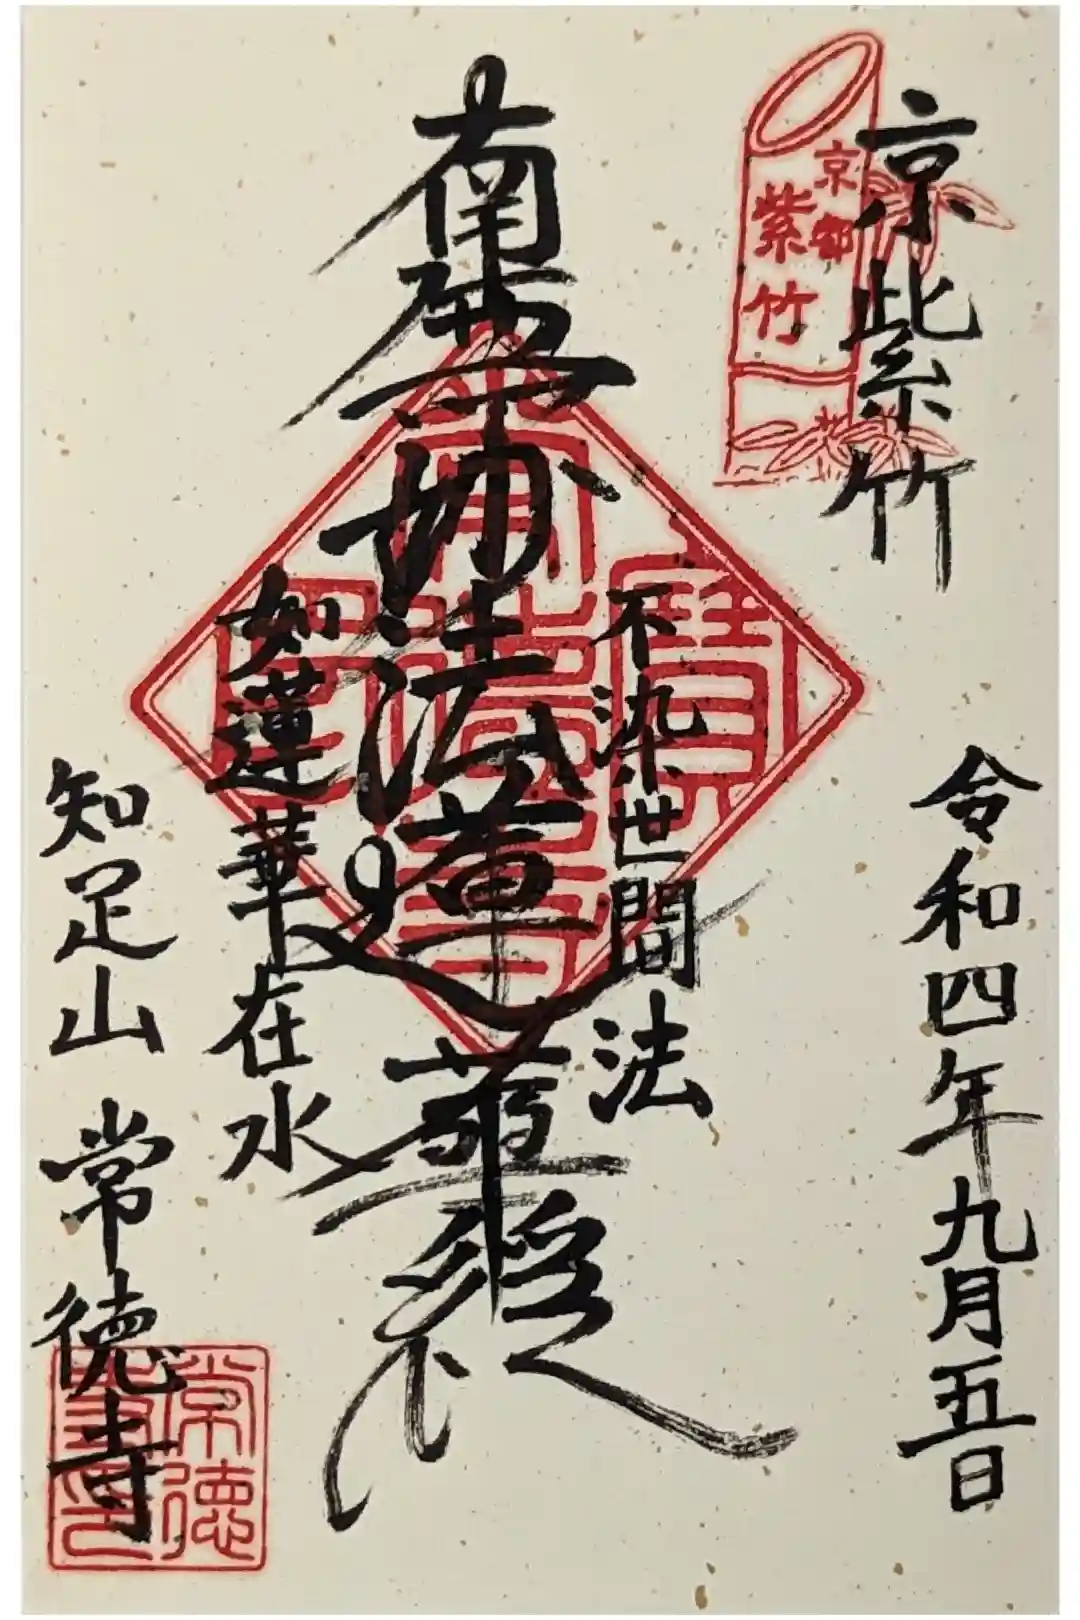 京紫竹
京都
紫竹
令和四年九月五日
不染世間法
南無妙法蓮華経
如蓮華在水
知足山 常徳寺
常徳
寺印